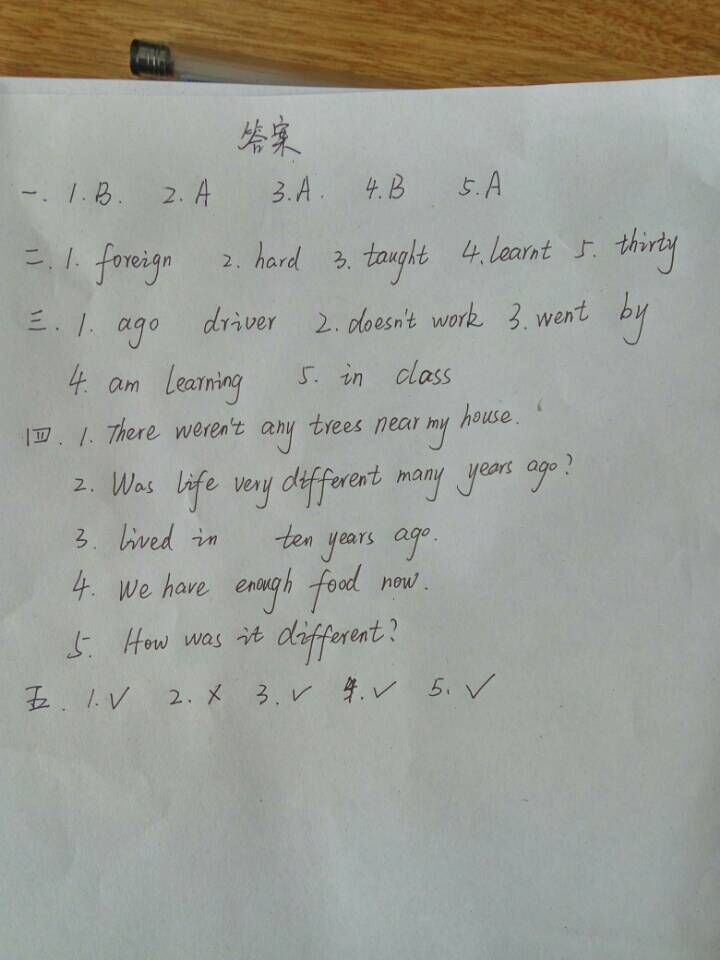 答案
一. 1. B. 2. A 3. A. 4. B 5. A
二. 1. foreign 2. hard 3. taught 4. learnt 5. thirty
三. 1. ago driver 2. doesn't work 3. went by
4. am learning 5. in class
四. 1. There weren't any trees near my house.
2. Was life very different many years ago?
3. lived in ten years ago.
4. We have enough food now.
5. How was it different?
五. 1. ✓ 2. × 3. ✓ 4. ✓ 5. ✓